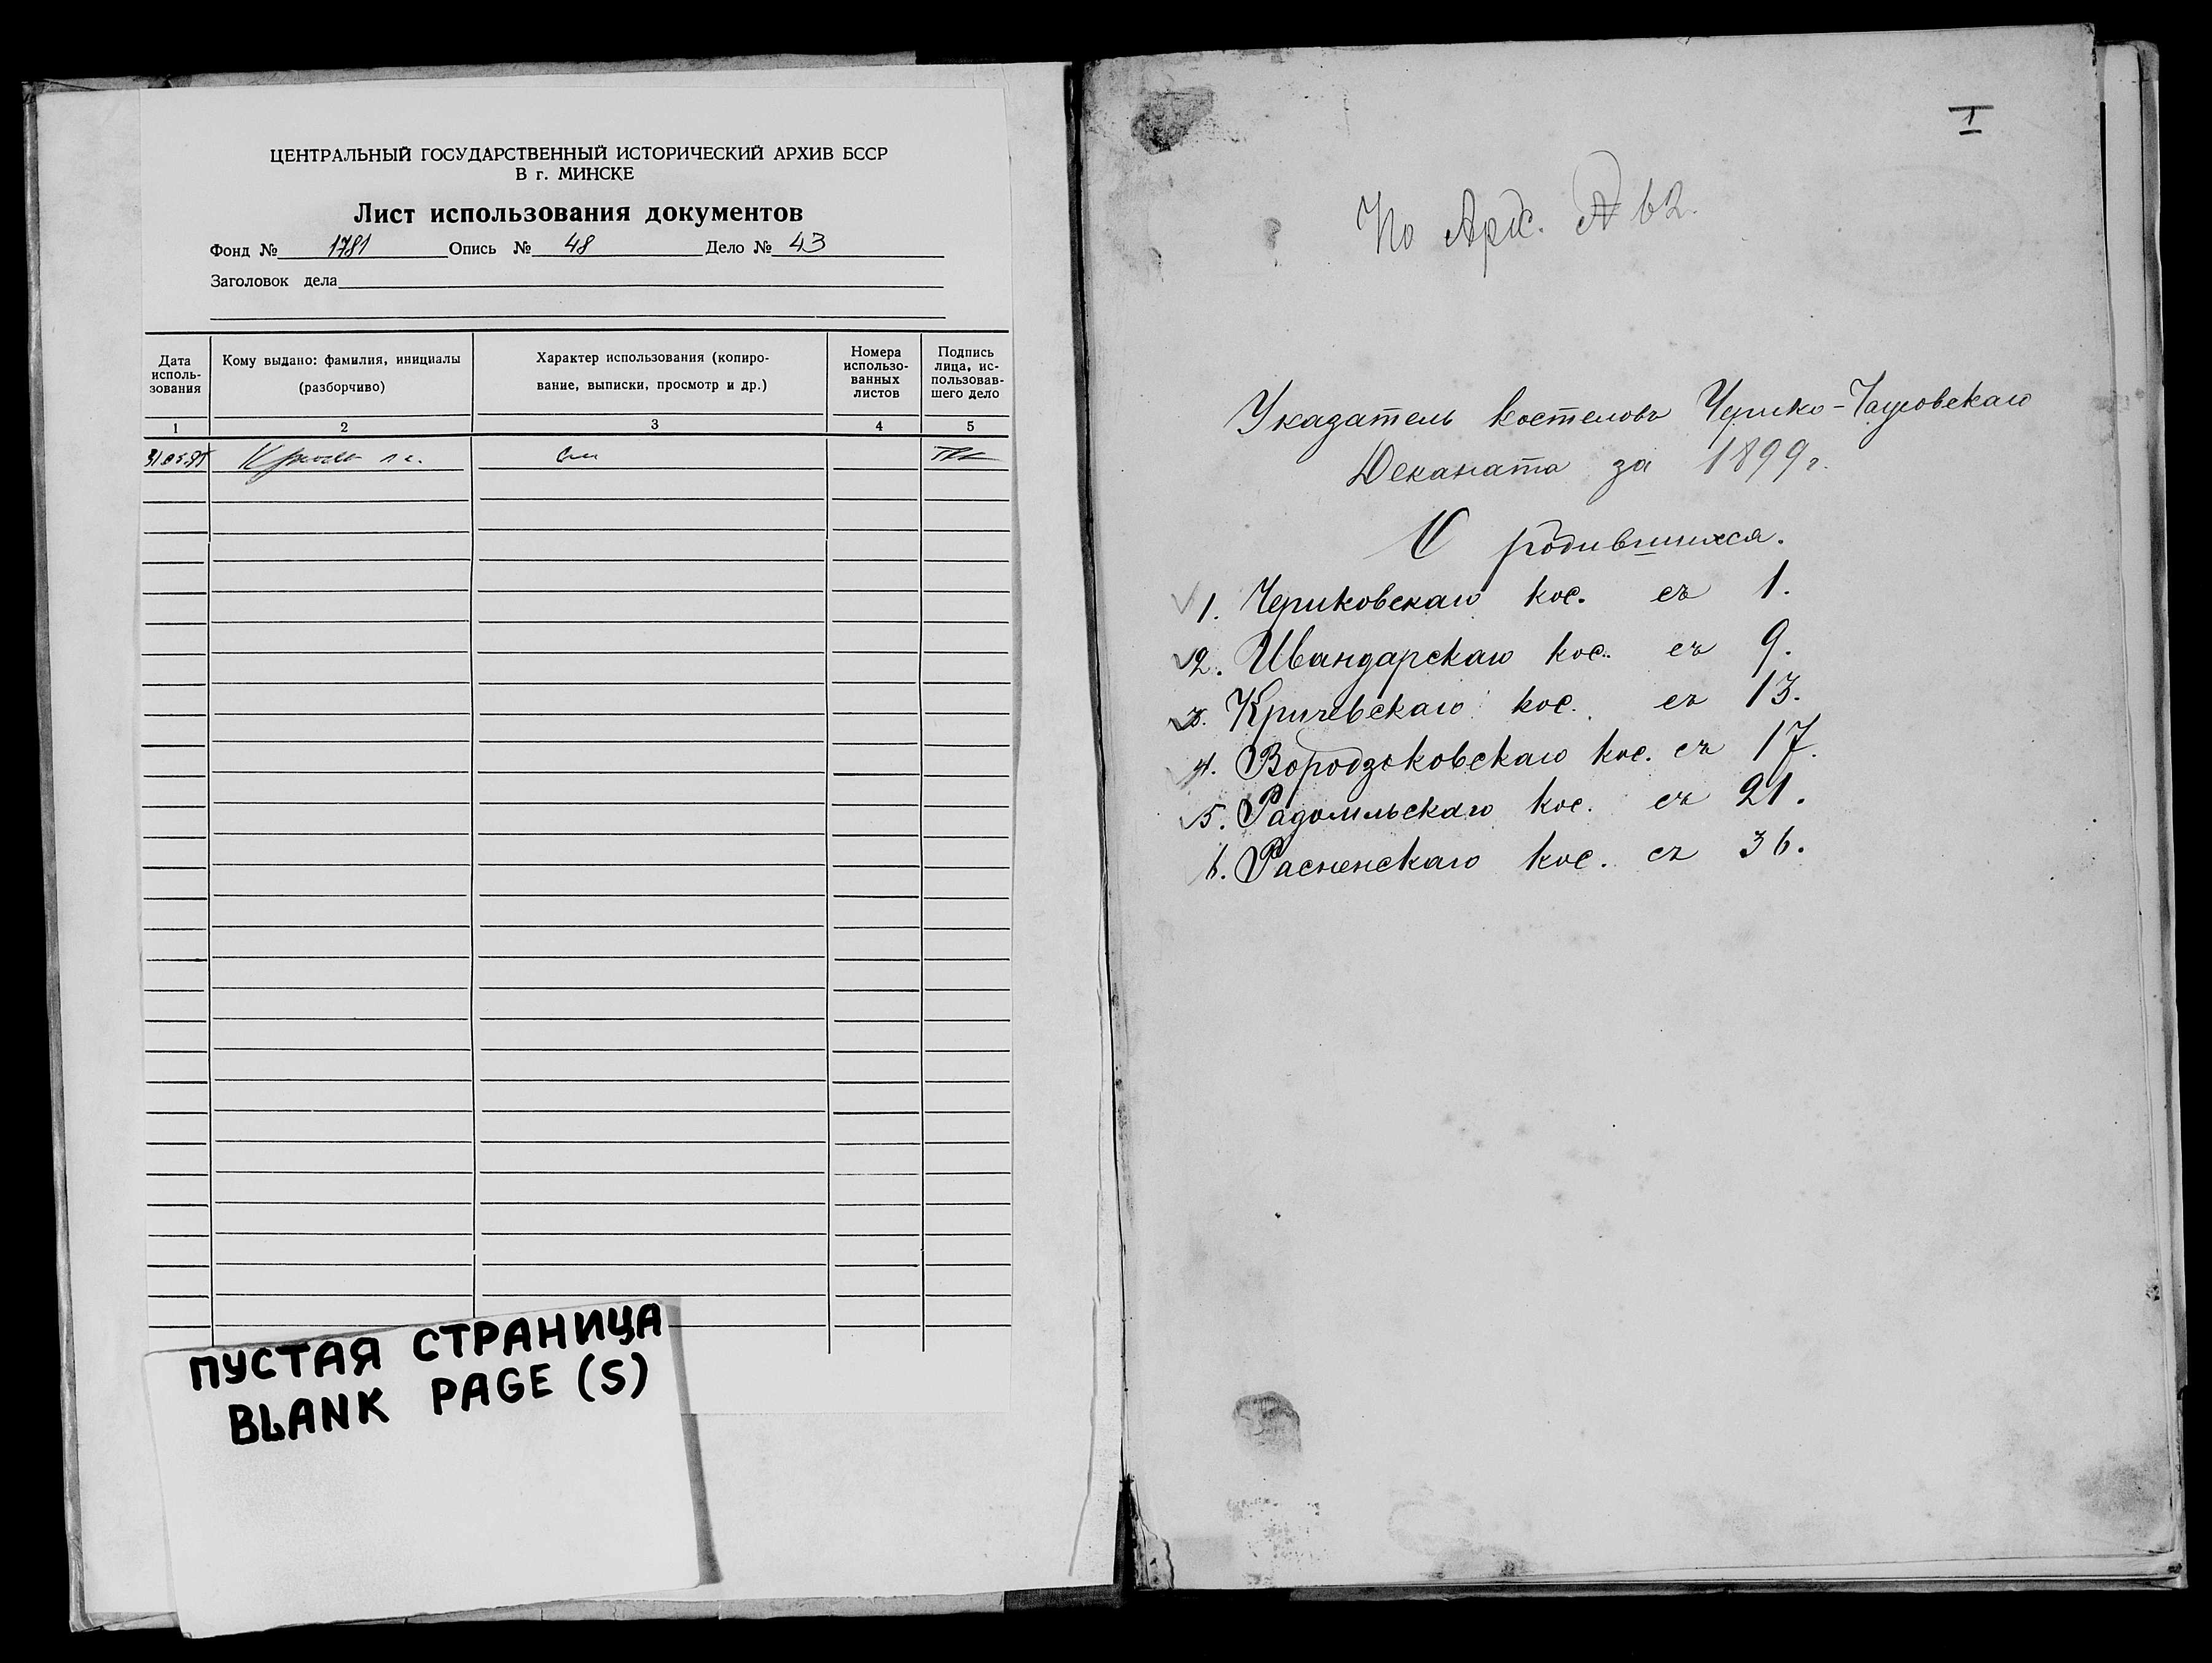 ЦЕНТРАЛЬНЫЙ ГОСУДАРСТВЕННЫЙ ИСТОРИЧЕСКИЙ АРХИВ БССР
В г. МИНСКЕ
Лист использования документов
Фонд № 1781 Опись № 48 Дело № 43
Заголовок дела
Дата исполь-
зования
Кому выдано: фамилия, инициалы
(разборчиво)
Характер использования (копиро-
вание, выписки, просмотр и др.)
Номера
использо-
ванных
листов
Подпись
лица, ис-
пользовав-
шего дело
1 2 3 4 5
ПУСТАЯ СТРАНИЦА
BLANK PAGE (S)
1
По Арх. № 62.
Указатель костеловъ Черико-Чаусовскаго
Деканата за 1899 г.
О родившихся.
1. Чериковскаго кос. съ 1.
2. Ивандарскаго кос. съ 9.
3. Кричевскаго кос. съ 13.
4. Вородзьковскаго кос. съ 17.
5. Радомльскаго кос. съ 21.
6. Расненскаго кос. съ 36.